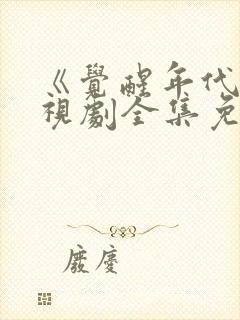 《覺醒年代
視劇全集免
廢慶